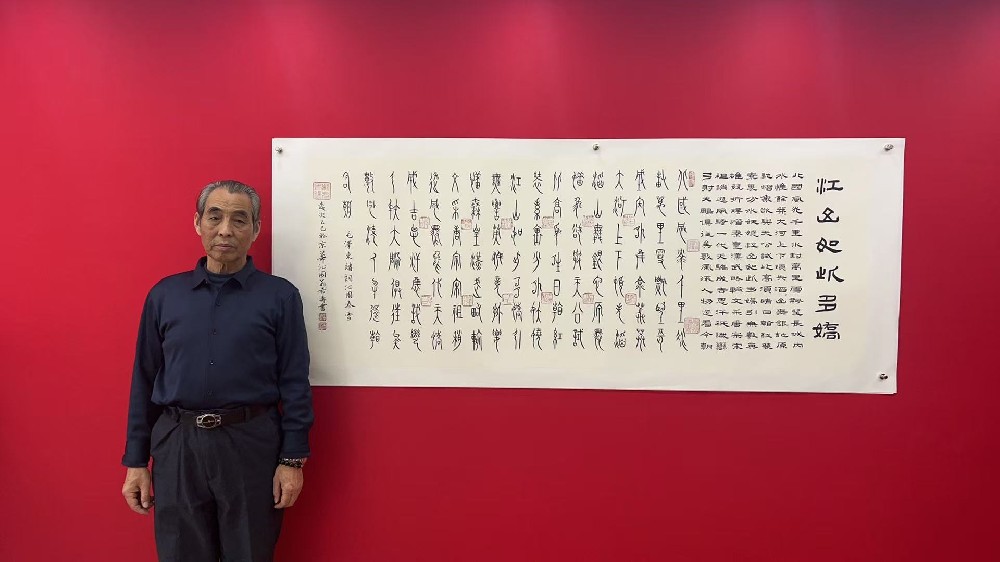 江山如此多嬌
北國風光千里冰封萬里雪飄望長城內
外惟餘莽大河上下頓失滔山舞銀蛇原
馳蠟象欲與天公試比高須晴日看紅裝
素裹分外妖嬈江山如此多嬌引無數英
雄競折腰惜秦皇漢武略輸文采唐宗宋
祖稍遜風騷一代天驕成吉思汗祇識彎
弓射大雕俱往矣數風流人物還看今朝
北國風光千里冰
封萬里雪飄望長
城內外惟餘莽莽
大河上下頓失滔
滔山舞銀蛇原馳
蠟象欲與天公試
比高須晴日看紅
裝素裹分外妖嬈
江山如此多嬌引
無數英雄競折腰
惜秦皇漢武略輸
文采唐宗宋祖稍
遜風騷一代天驕
成吉思汗祇識彎
弓射大雕俱往矣
數風流人物還看
今朝
毛澤東詩詞沁園春雪
歲次乙巳於京華沁園